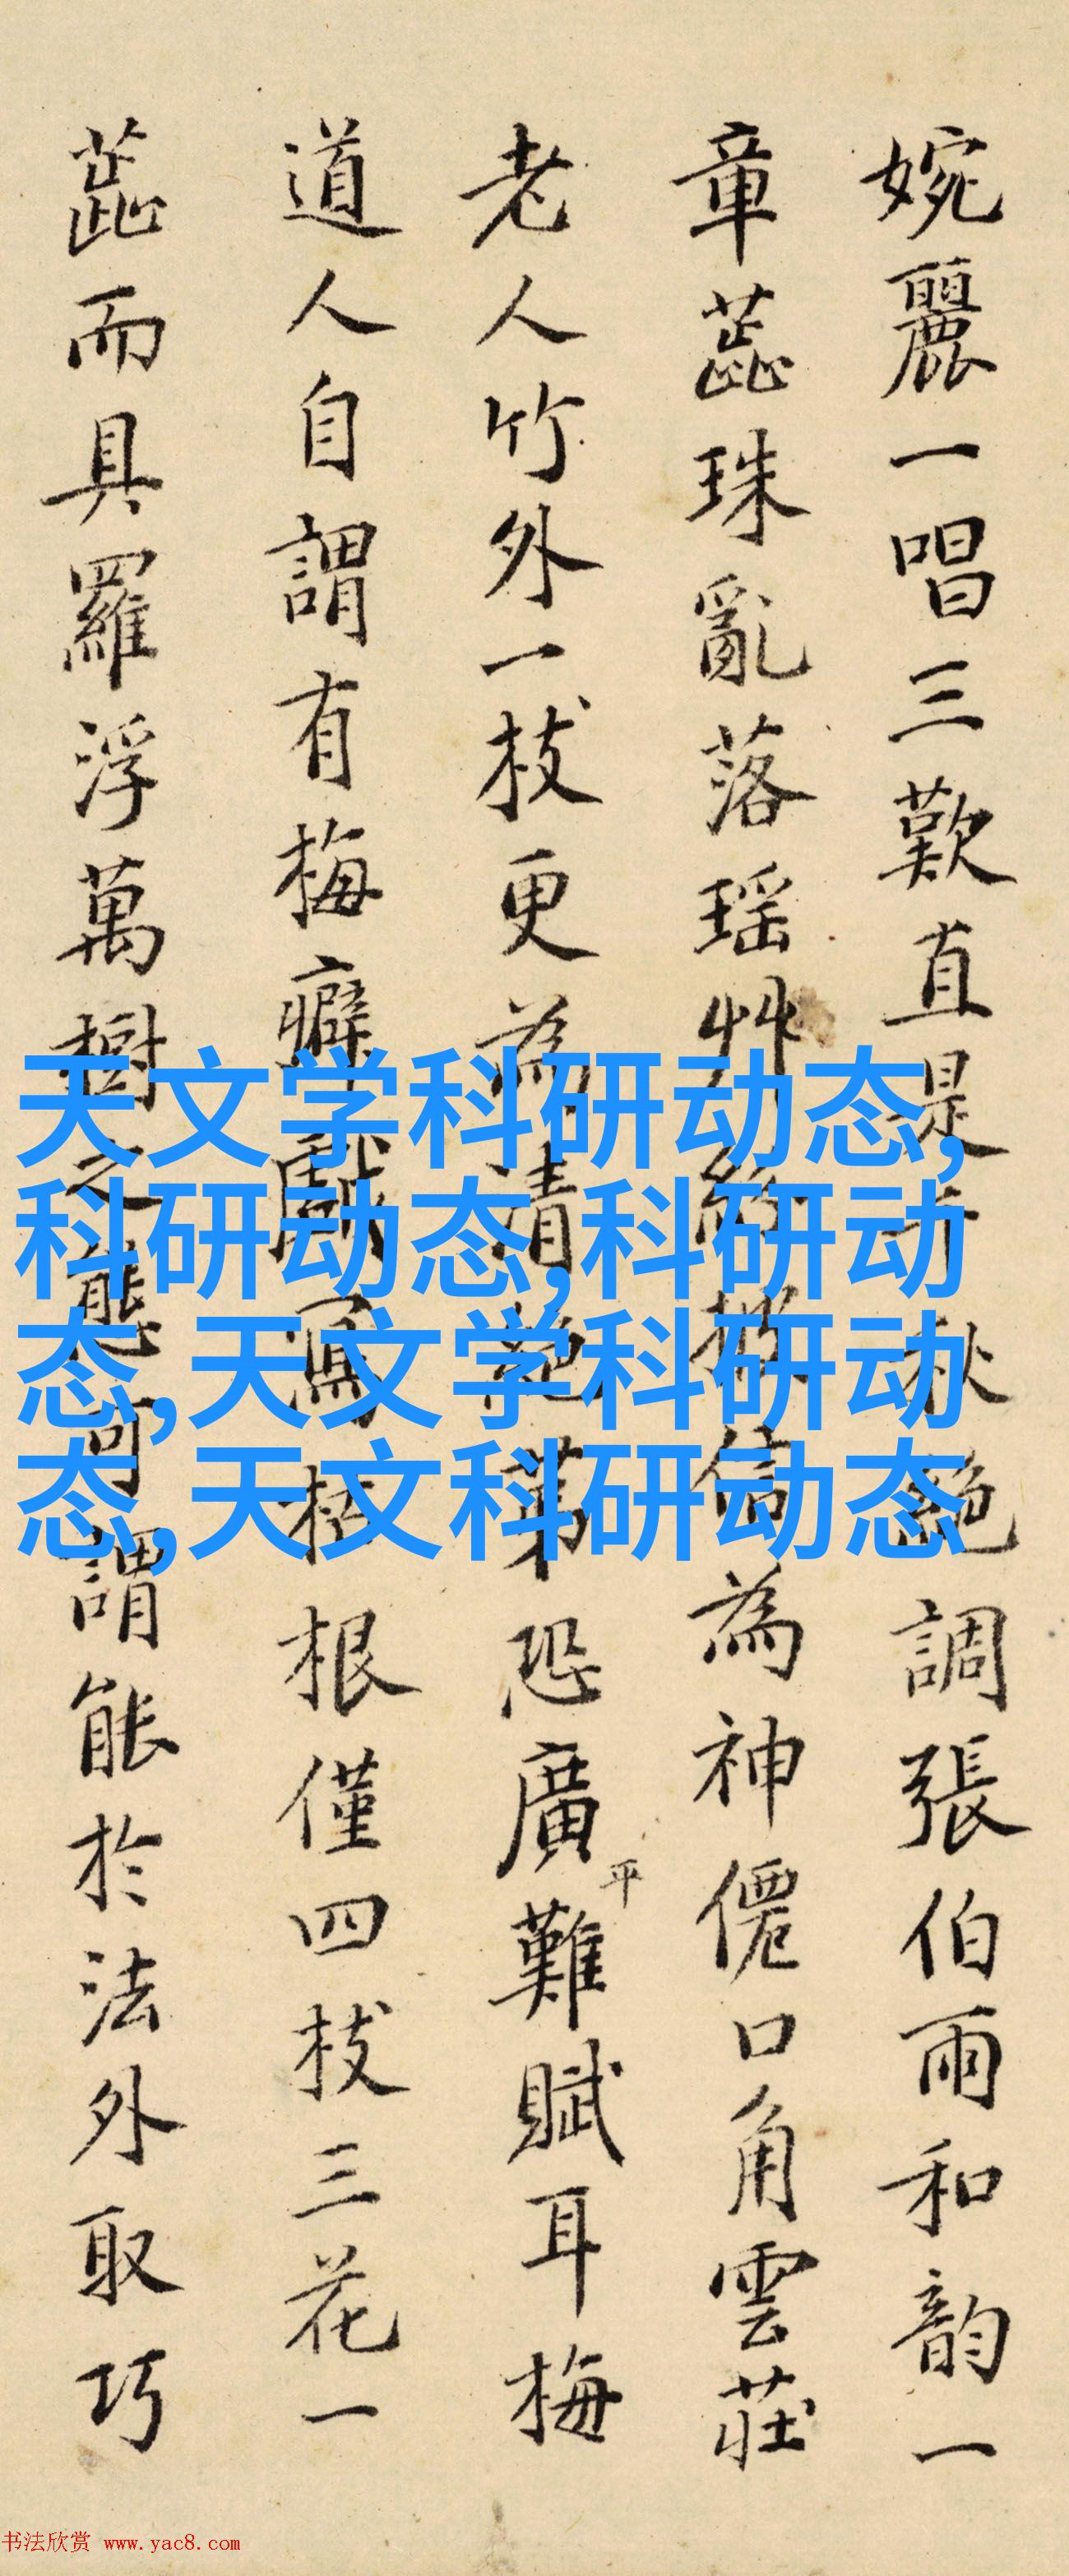 婉麗一唱三歎直是千秋絕調張伯雨和韻一
章蕋珠亂落瑶艸紛披信為神僊口角雲莊
老人竹外一枝更為清絕第恐廣平難賦耳梅
道人自謂有梅癖戲寫枯根僅四枝三花一
蕋而具羅浮萬樹之態可謂能於法外取巧
天文学科研动态,
科研动态,科研动
态,天文学科研动
态,天文科研动态
书法欣赏 www.yac8.com